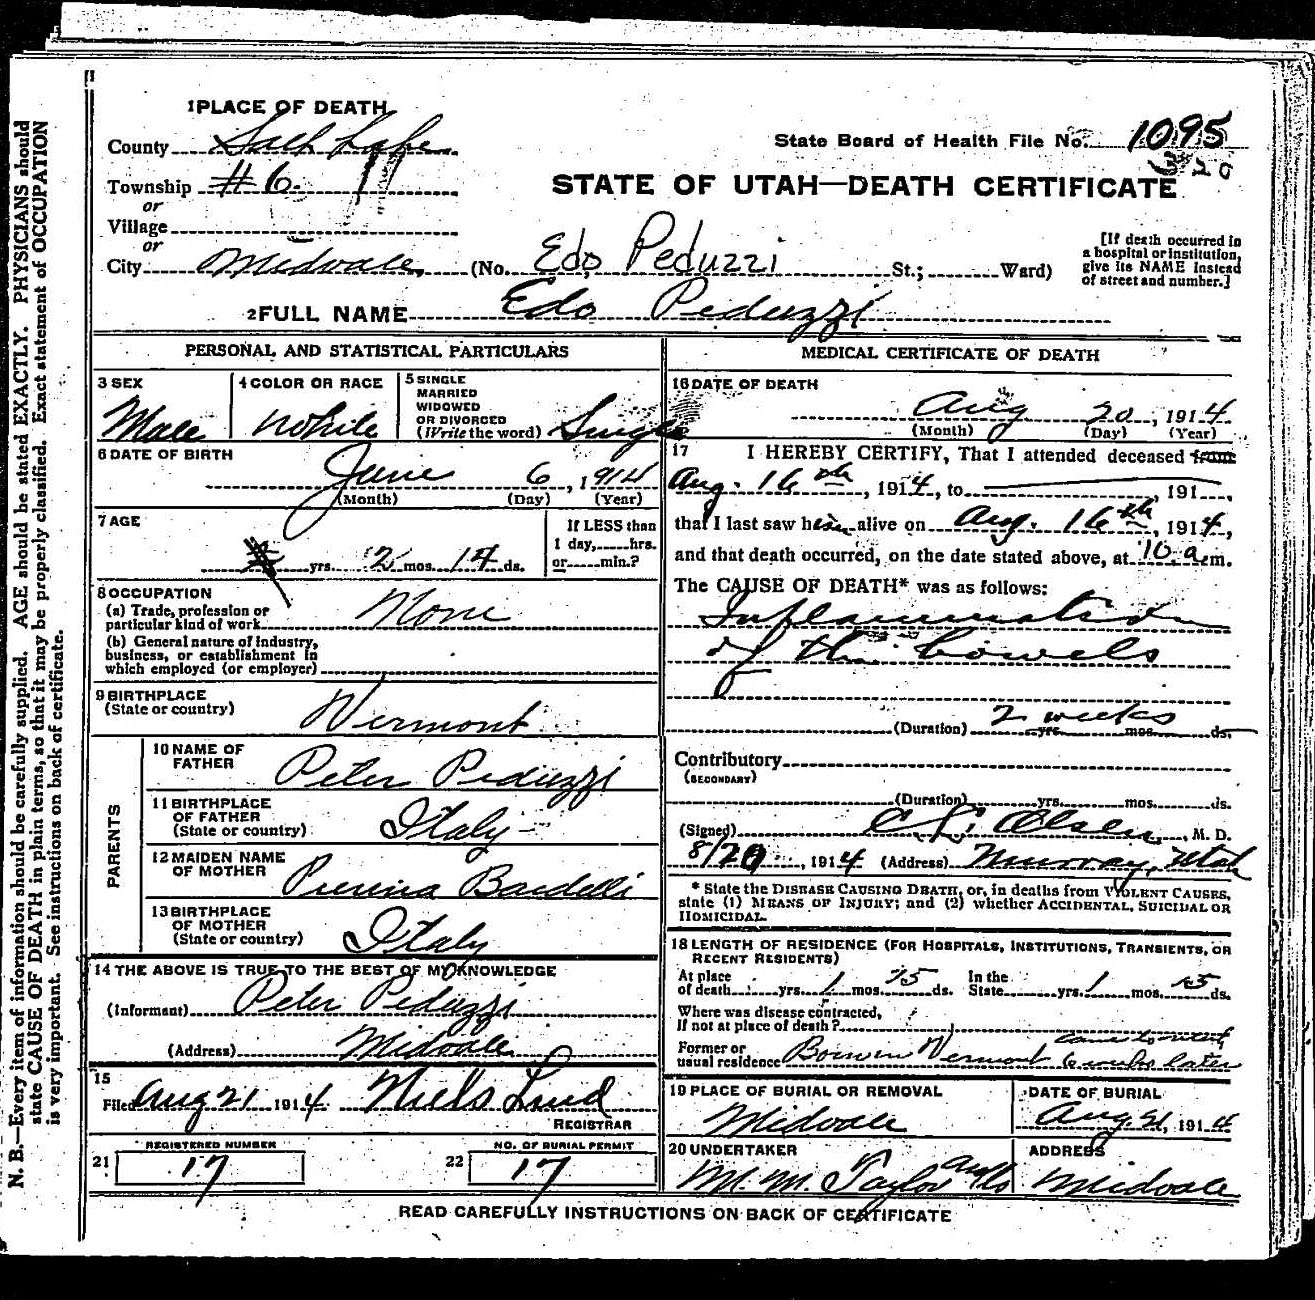 1 PLACE OF DEATH
County Salt Lake
State Board of Health File No. 1095
320
Township #6.
or
STATE OF UTAH—DEATH CERTIFICATE
Village
or
City Midvale (No. Edo Peduzzi St.; Ward)
[If death occurred in a hospital or institution, give its NAME instead of street and number.]
2 FULL NAME Edo Peduzzi
PERSONAL AND STATISTICAL PARTICULARS
3 SEX
Male
4 COLOR OR RACE
White
5 SINGLE
MARRIED
WIDOWED
OR DIVORCED
(Write the word) Single
6 DATE OF BIRTH
June 6, 1914
(Month) (Day) (Year)
7 AGE
yrs. 2 mos. 14 ds.
If LESS than
1 day, hrs.
or min.?
8 OCCUPATION
(a) Trade, profession or
particular kind of work None
(b) General nature of industry,
business, or establishment in
which employed (or employer)
9 BIRTHPLACE
(State or country) Vermont
PARENTS
10 NAME OF
FATHER Peter Peduzzi
11 BIRTHPLACE
OF FATHER
(State or country) Italy
12 MAIDEN NAME
OF MOTHER Pierina Bardelli
13 BIRTHPLACE
OF MOTHER
(State or country) Italy
14 THE ABOVE IS TRUE TO THE BEST OF MY KNOWLEDGE
(Informant) Peter Peduzzi
(Address) Midvale
15
Filed Aug 21 1914 Niels Lind
REGISTRAR
REGISTERED NUMBER
21 17
NO. OF BURIAL PERMIT
22 17
MEDICAL CERTIFICATE OF DEATH
16 DATE OF DEATH
Aug 20, 1914
(Month) (Day) (Year)
17 I HEREBY CERTIFY, That I attended deceased from
Aug. 16th, 1914, to , 191 ,
that I last saw him alive on Aug. 16th, 1914,
and that death occurred, on the date stated above, at 10 a.m.
The CAUSE OF DEATH* was as follows:
Inflammation
of the bowels
(Duration) 2 weeks yrs. mos. ds.
Contributory
(SECONDARY)
(Duration) yrs. mos. ds.
(Signed) Olsen, M. D.
8/20, 1914 (Address) Murray, Utah
* State the DISEASE CAUSING DEATH, or, in deaths from VIOLENT CAUSES,
state (1) MEANS OF INJURY; and (2) whether ACCIDENTAL, SUICIDAL OR
HOMICIDAL.
18 LENGTH OF RESIDENCE (FOR HOSPITALS, INSTITUTIONS, TRANSIENTS, OR
RECENT RESIDENTS)
At place
of death yrs. 1 mos. 15 ds. In the
State yrs. 1 mos. 15 ds.
Where was disease contracted,
If not at place of death?
Former or
usual residence Vermont
6 weeks later
19 PLACE OF BURIAL OR REMOVAL
Midvale
DATE OF BURIAL
Aug. 21, 1914
20 UNDERTAKER
M. M. Taylor
ADDRESS
Midvale
READ CAREFULLY INSTRUCTIONS ON BACK OF CERTIFICATE
N. B.—Every item of information should be carefully supplied. AGE should be stated EXACTLY. PHYSICIANS should
state CAUSE OF DEATH in plain terms, so that it may be properly classified. Exact statement of OCCUPATION
is very important. See instructions on back of certificate.